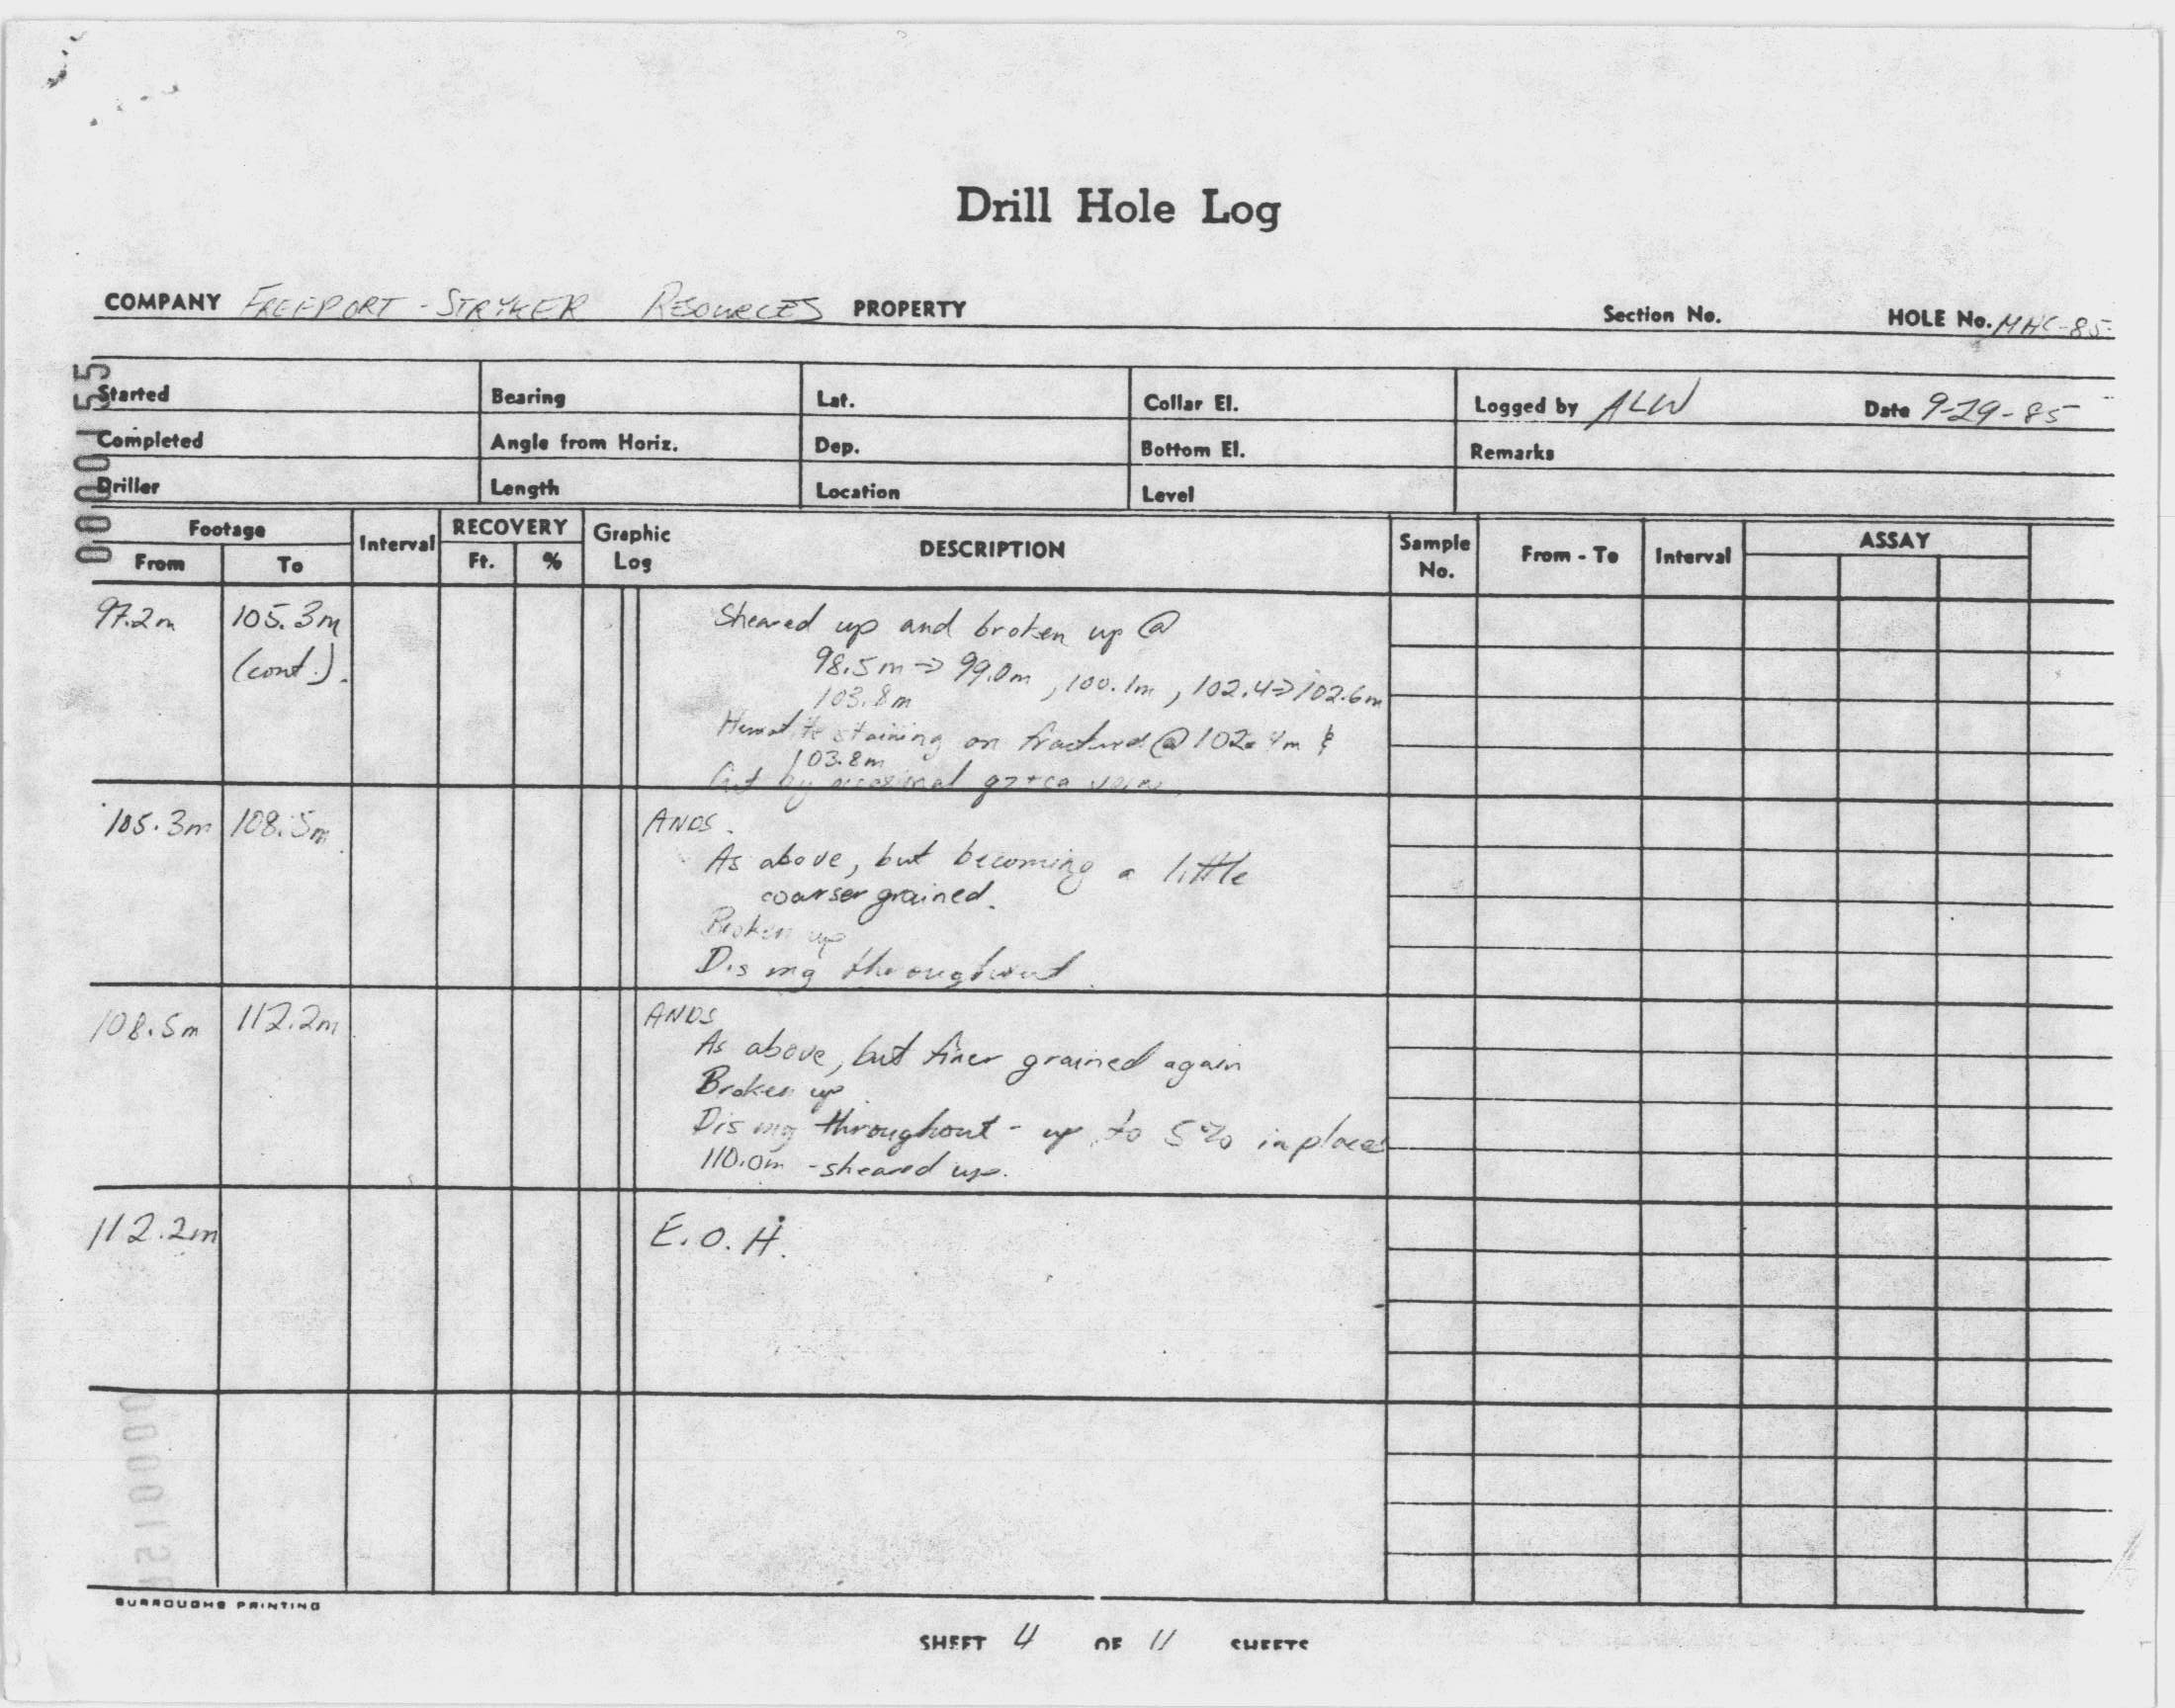 Drill Hole Log
COMPANY FREEPORT - STRYKER RESOURCES PROPERTY Section No. HOLE No. MHC-85-
0000155
Started Bearing Lat. Collar El. Logged by ALW Date 9-29-85
Completed Angle from Horiz. Dep. Bottom El. Remarks
Driller Length Location Level
Footage Interval RECOVERY Graphic Log DESCRIPTION Sample No. From - To Interval ASSAY
From To Ft. %
97.2m 105.3m Sheared up and broken up @
(cont.). 98.5m → 99.0m, 100.1m, 102.4→102.6m
103.8m
Hematite staining on fractured @ 102.4m &
103.8m
Cut by occasional qz+ca veins.
105.3m 108.5m ANDS.
As above, but becoming a little
coarser grained.
Broken up
Dis mg throughout.
108.5m 112.2m ANDS
As above, but finer grained again
Broken up.
Dis mg throughout - up to 5% in places
110.0m - sheared up.
112.2m E.O.H.
BURROUGHS PRINTING
SHEET 4 OF 11 SHEETS